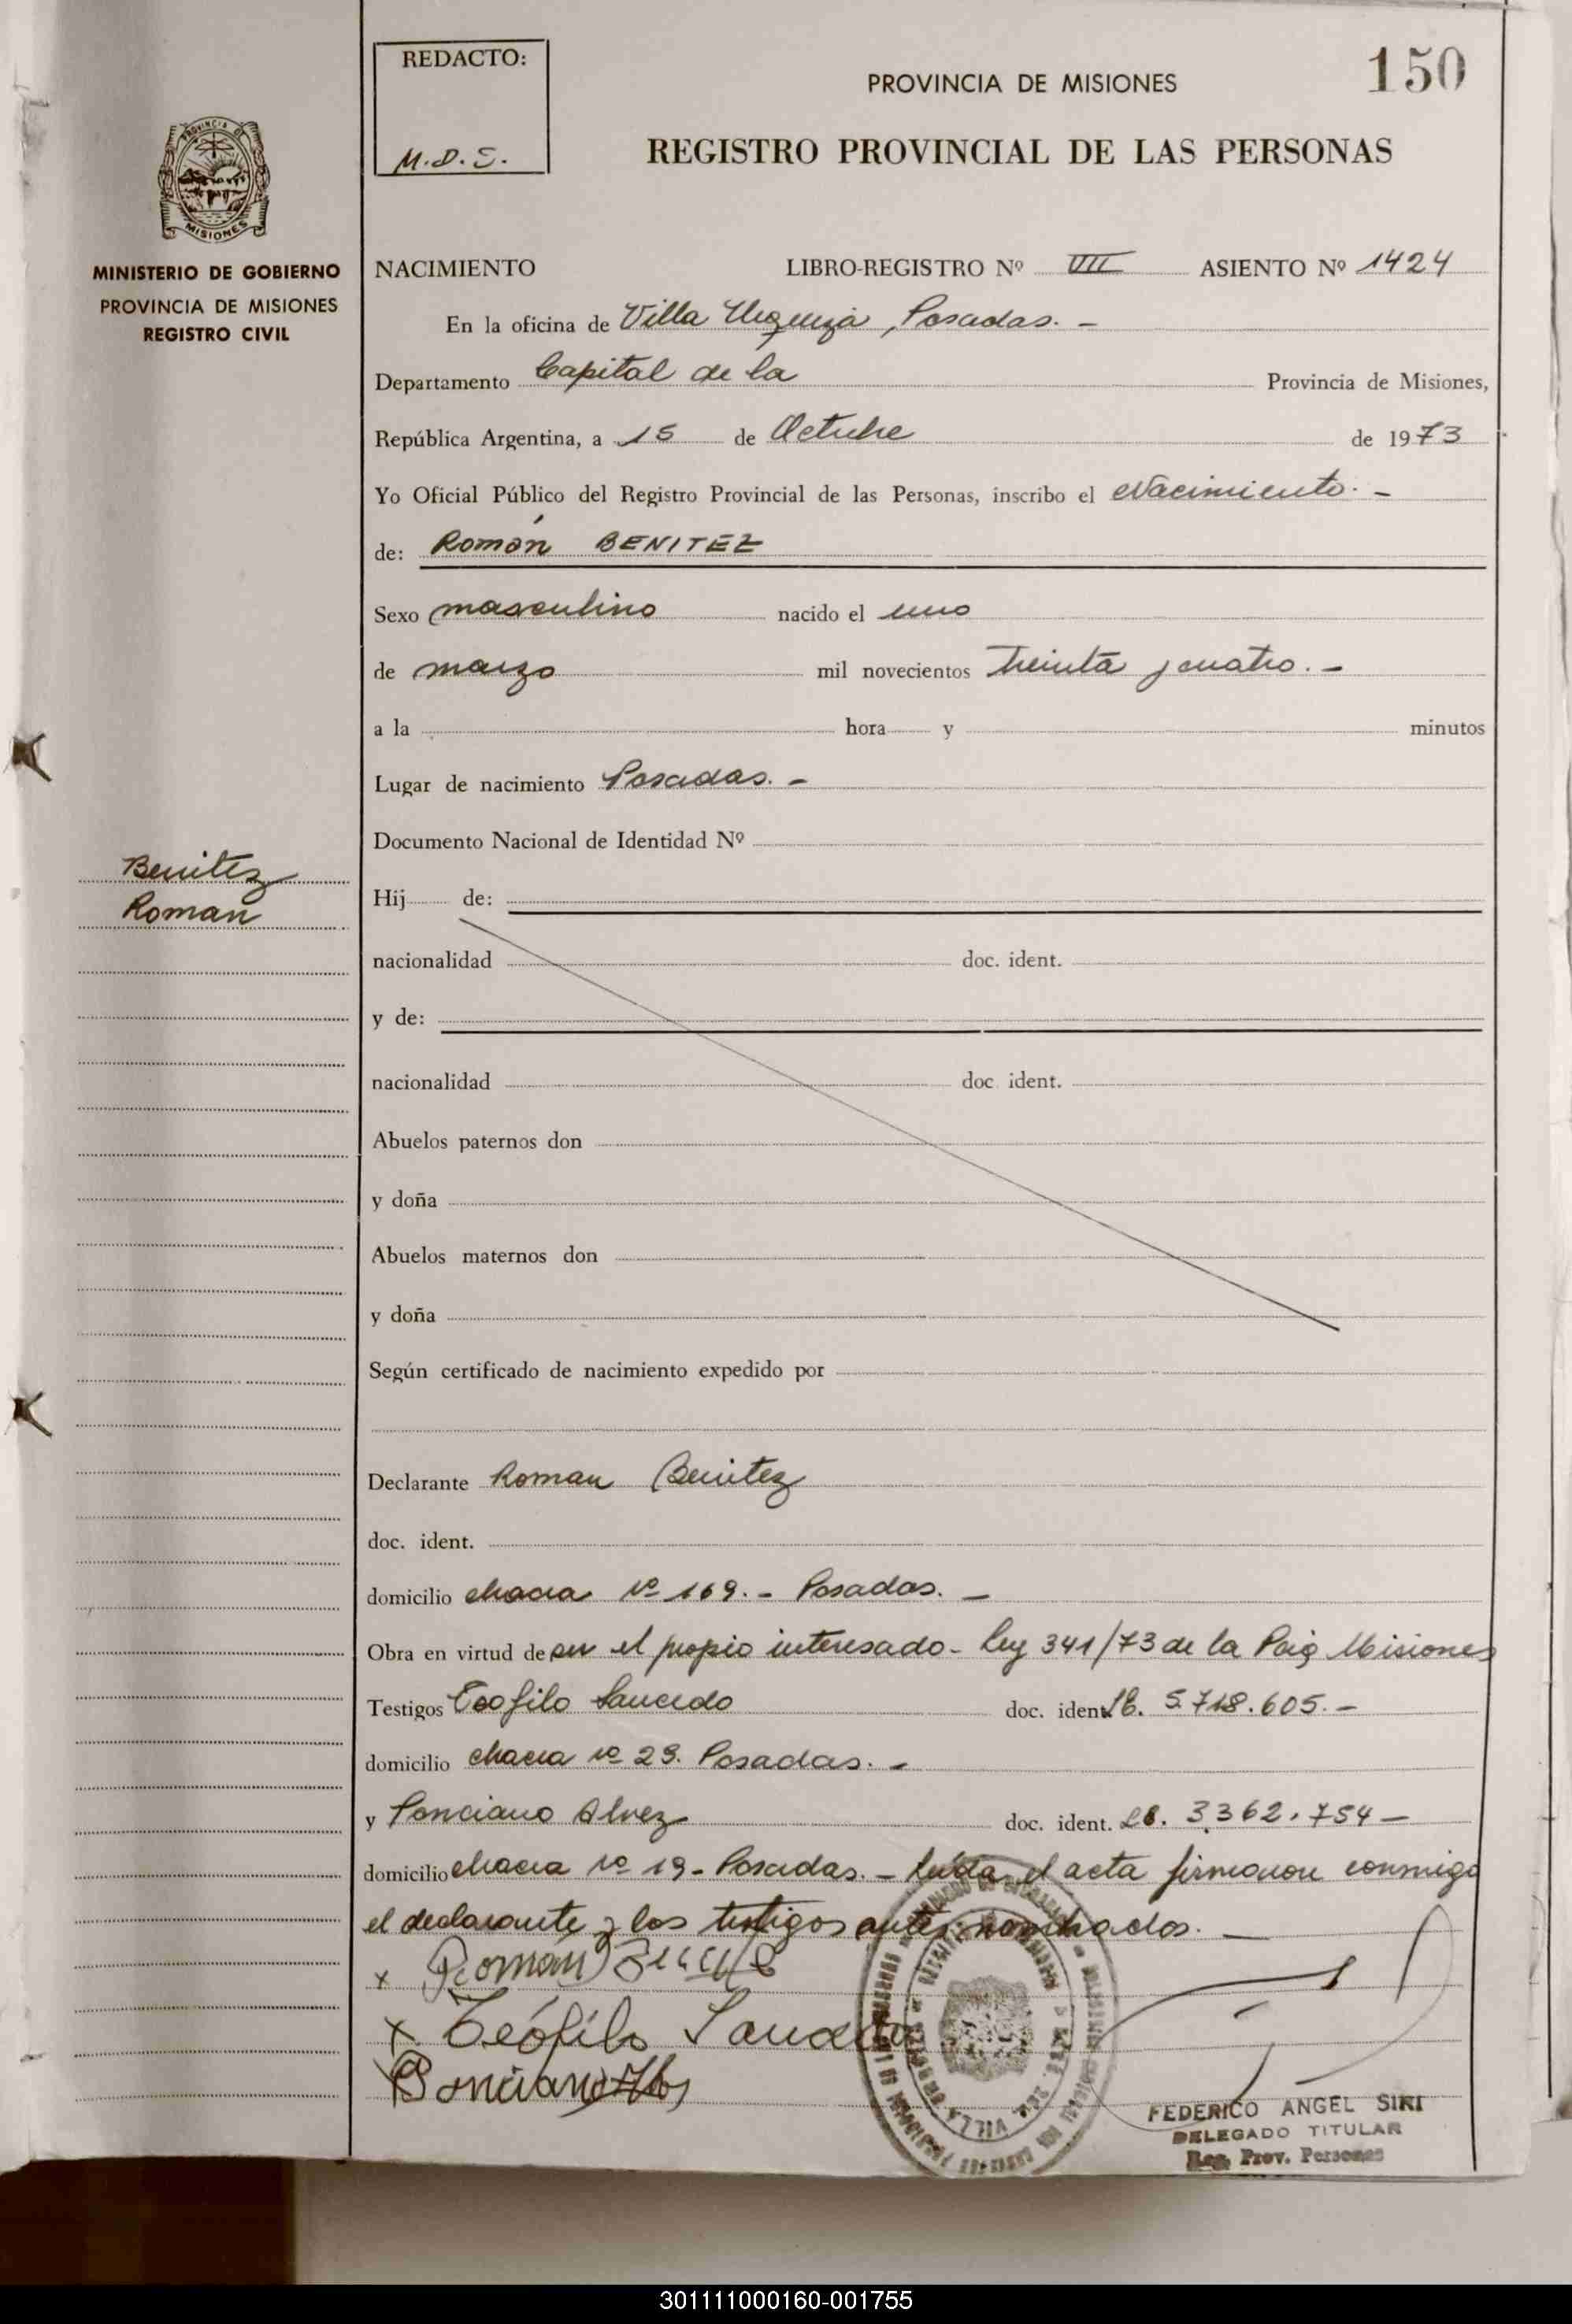 REDACTO:
M.D.S.
PROVINCIA DE MISIONES
150
REGISTRO PROVINCIAL DE LAS PERSONAS
PROVINCIA DE
MISIONES
MINISTERIO DE GOBIERNO
PROVINCIA DE MISIONES
REGISTRO CIVIL
NACIMIENTO LIBRO-REGISTRO Nº VII ASIENTO Nº 1424
En la oficina de Villa Urquiza, Posadas. -
Departamento Capital de la Provincia de Misiones,
República Argentina, a 15 de Octubre de 1973
Yo Oficial Público del Registro Provincial de las Personas, inscribo el Nacimiento. -
de: Román BENITEZ
Sexo masculino nacido el uno
de marzo mil novecientos treinta y cuatro. -
a la hora y minutos
Lugar de nacimiento Posadas. -
Documento Nacional de Identidad Nº
Benitez
Roman
Hij de:
nacionalidad doc. ident.
y de:
nacionalidad doc. ident.
Abuelos paternos don
y doña
Abuelos maternos don
y doña
Según certificado de nacimiento expedido por
Declarante Roman Benitez
doc. ident.
domicilio chacra nº 169. - Posadas. -
Obra en virtud de ser el propio interesado - Ley 341/73 de la Misiones
Testigos Teofilo Saucedo doc. ident. 5.718.605. -
domicilio chacra nº 29. Posadas. -
y Ponciano Alvez doc. ident. 3.362.754 -
domicilio chacra nº 19 - Posadas. - Leída el acta firmaron conmigo
el declarante y los testigos antes nombrados. -
x Román
x Teófilo Saucedo
Ponciano
VILLA
FEDERICO ANGEL SIRI
DELEGADO TITULAR
Reg. Prov. Personas
301111000160-001755